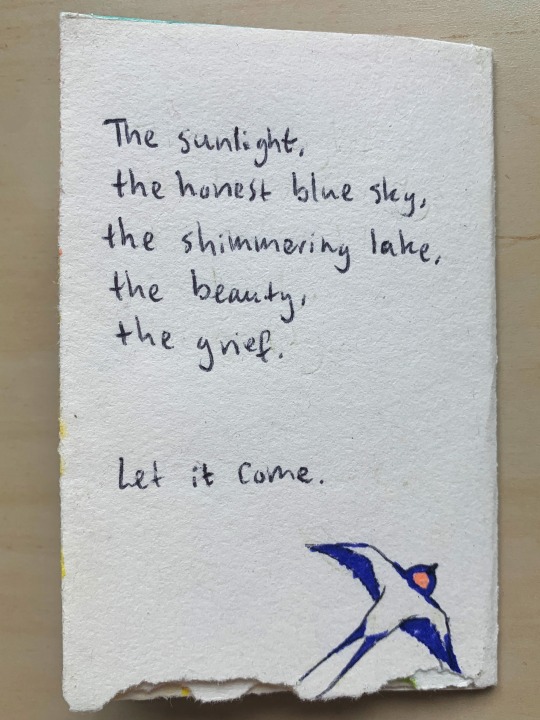 The sunlight,
the honest blue sky,
the shimmering lake,
the beauty,
the grief.
Let it come.